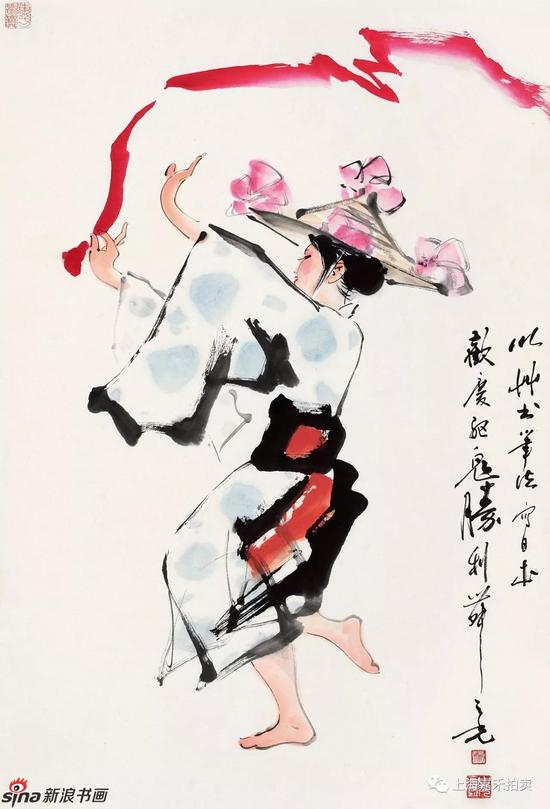 以艸書筆法寫日本
歡慶驅鬼勝利舞 之光
sina新浪书画
上海嘉禾拍卖